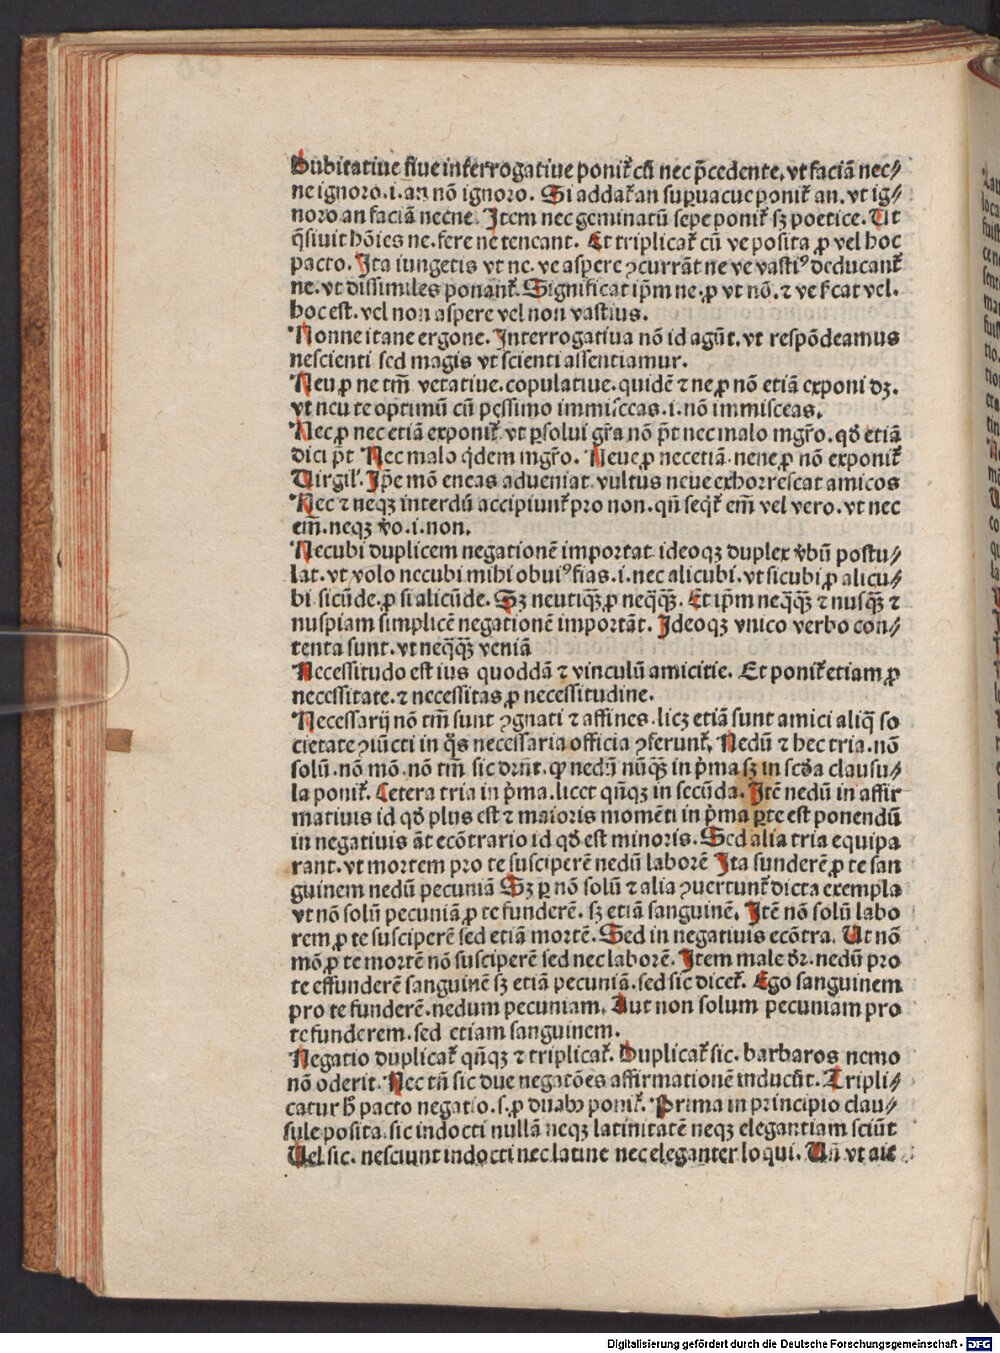 Dubitatiue siue interrogatiue ponit᷑ cũ nec p̃cedente. vt faciã nec⸗
ne ignoro. i. an nõ ignoro. Si addat᷑ an suꝑuacue ponit᷑ an. vt ig⸗
noro an faciã necne. Item nec geminatũ sepe ponit᷑ sꝫ poetice. Ut
q̃siuit hõies ne. fere ne teneant. Et triplicat᷑ cũ ve posita ꝓ vel hoc
pacto. Ita iungetis vt ne. ve aspere ꝯcurrãt ne ve vastiꝰ deducant᷑
ne. vt dissimiles ponant᷑. Significat ip̃m ne. ꝓ vt nõ. ⁊ ve s̃cat vel.
hoc est. vel non aspere vel non vastius.
Nonne itane ergone. Interrogatiua nõ id agũt. vt respõdeamus
nescienti sed magis vt scienti assentiamur.
Neu ꝓ ne tm̃ vetatiue. copulatiue. quidẽ ⁊ ne ꝓ nõ etiã exponi dꝫ.
vt neu te optimũ cũ pessimo immisceas. i. nõ immisceas.
Nec ꝓ nec etiã exponit᷑ vt ꝑsolui gr̃a nõ p̃t nec malo mgr̃o. qđ etiã
dici p̃t Nec malo q̇dem mgr̃o. Neue ꝓ nec etiã. nene ꝓ nõ exponit᷑
Virgil᷑. Ip̃e mõ eneas adueniat. vultus neue exhorrescat amicos
Nec ⁊ neqꝫ interdũ accipiunt᷑ pro non. qñ seq̇t᷑ em̃ vel vero. vt nec
em̃. neqꝫ ṽo. i. non.
Necubi duplicem negationẽ importat ideoqꝫ duplex v̾bũ postu⸗
lat. vt volo necubi mihi obuiꝰ fias. i. nec alicubi. vt sicubi ꝓ alicu⸗
bi sicũde. ꝓ si alicũde. Sꝫ neutiqꝫ̃ ꝓ neq̃qꝫ̃. Et ip̃m neq̃qꝫ̃ ⁊ nusqꝫ̃ ⁊
nuspiam simplicẽ negationẽ importãt. Ideoqꝫ vnico verbo con⸗
tenta sunt. vt neq̃qꝫ̃ veniã
Necessitudo est ius quoddã ⁊ vinculũ amicitie. Et ponit᷑ etiam ꝓ
necessitate. ⁊ necessitas ꝓ necessitudine.
Necessarij nõ tm̃ sunt ꝯgnati ⁊ affines. licꝫ etiã sunt amici aliq̃ so
cietate ꝯiũcti in q̃s necessaria officia ꝯferunt᷑. Nedũ ⁊ hec tria. nõ
solũ. nõ mõ. nõ tm̃ sic dr̃nt. ꝙ nedũ nũqꝫ̃ in p̾ma sꝫ in scđa clausu⸗
la ponit᷑. Cetera tria in p̾ma. licet qñqꝫ in secũda. Itẽ nedũ in affir
matiuis id qđ plus est ⁊ maioris momẽti in p̾ma ꝑte est ponendũ
in negatiuis ãt ecõtrario id qđ est minoris. Sed alia tria equipa
rant. vt mortem pro te susciperẽ nedũ laborẽ Ita funderẽ ꝓ te san
guinem nedũ pecuniã Sꝫ ꝑ nõ solũ ⁊ alia ꝯuertunt᷑ dicta exempla
vt nõ solũ pecuniã ꝓ te funderẽ. sꝫ etiã sanguinẽ. Itẽ nõ solũ labo
rem ꝓ te susciperẽ sed etiã mortẽ. Sed in negatiuis ecõtra. Ut nõ
mõ ꝓ te mortẽ nõ susciperẽ sed nec laborẽ. Item male dr̃. nedũ pro
te effunderẽ sanguinẽ sꝫ etiã pecuniã. sed sic dicet᷑. Ego sanguinem
pro te funderẽ. nedum pecuniam. Aut non solum pecuniam pro
te funderem. sed etiam sanguinem.
Negatio duplicat᷑ qñqꝫ ⁊ triplicat᷑. Duplicat᷑ sic. barbaros nemo
nõ oderit. Nec tñ sic due negatões affirmationẽ inducũt. Tripli⸗
catur h̾ pacto negatio. s. ꝓ duabꝰ ponit᷑. Prima in principio clau⸗
sule posita. sic indocti nullã neqꝫ latinitatẽ neqꝫ elegantiam sciũt
Uel sic. nesciunt indocti nec latine nec eleganter loqui. Uñ vt ait
Digitalisierung gefördert durch die Deutsche Forschungsgemeinschaft - DFG